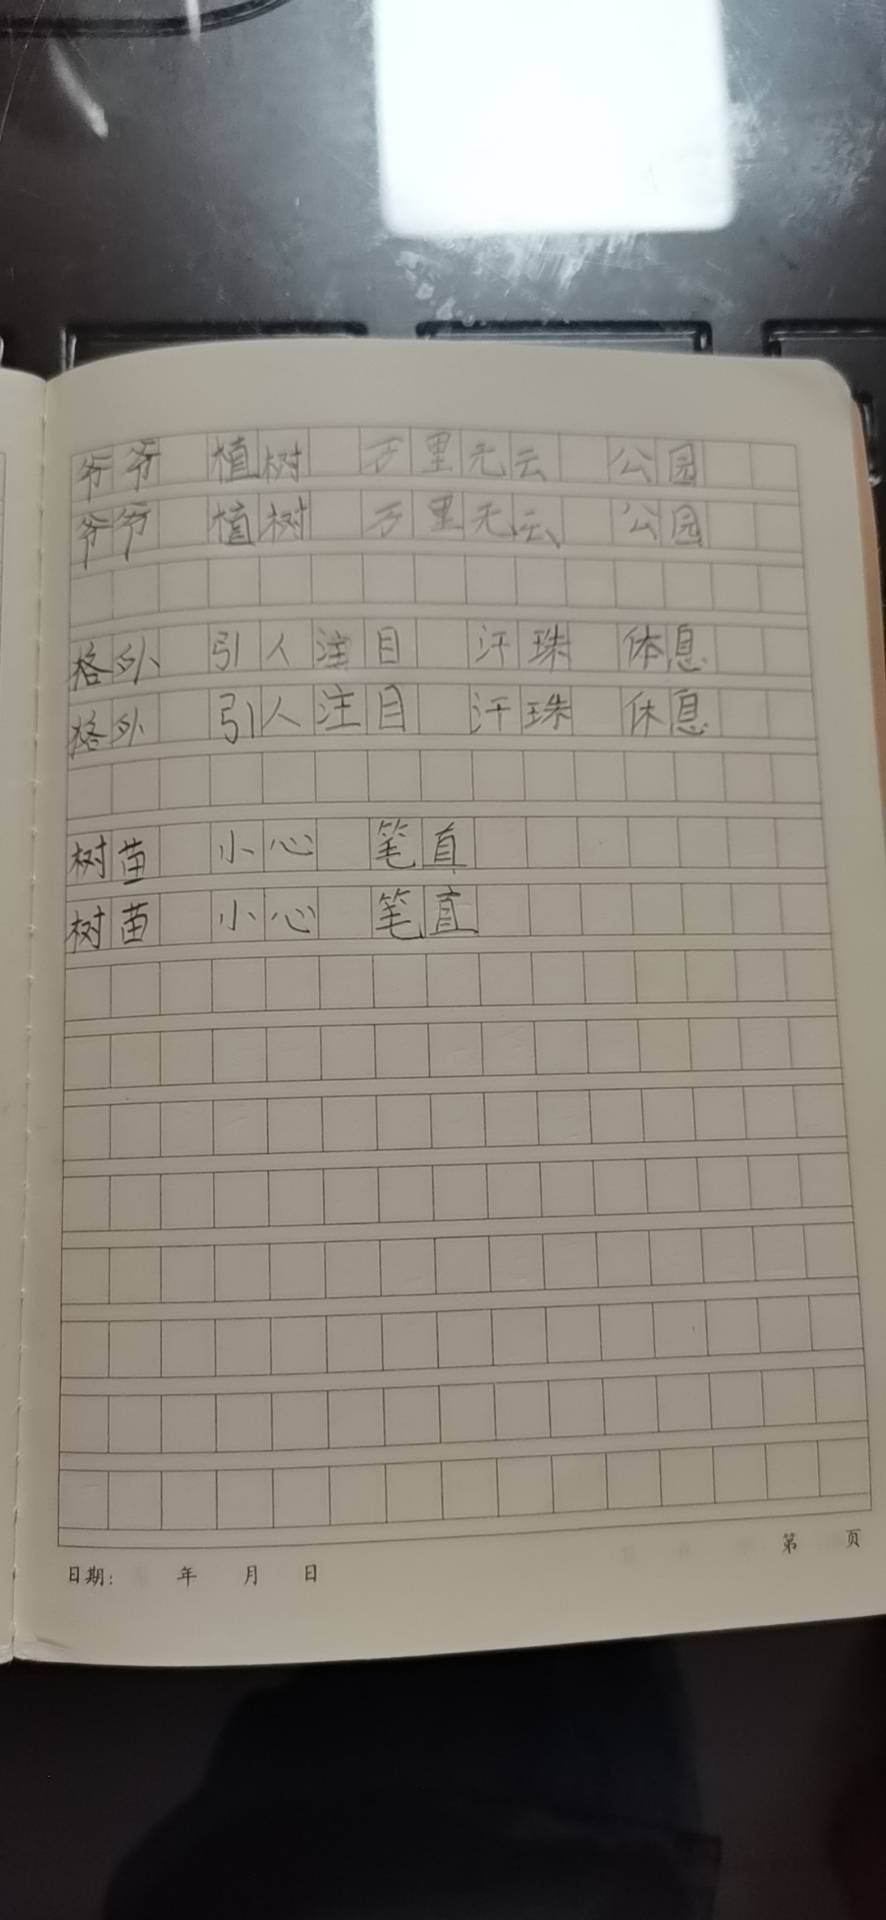 爷爷 植树 万里无云 公园
爷爷 植树 万里无云 公园
格外 引人注目 汗珠 体息
格外 引人注目 汗珠 休息
树苗 小心 笔直
树苗 小心 笔直
第 页
日期: 年 月 日